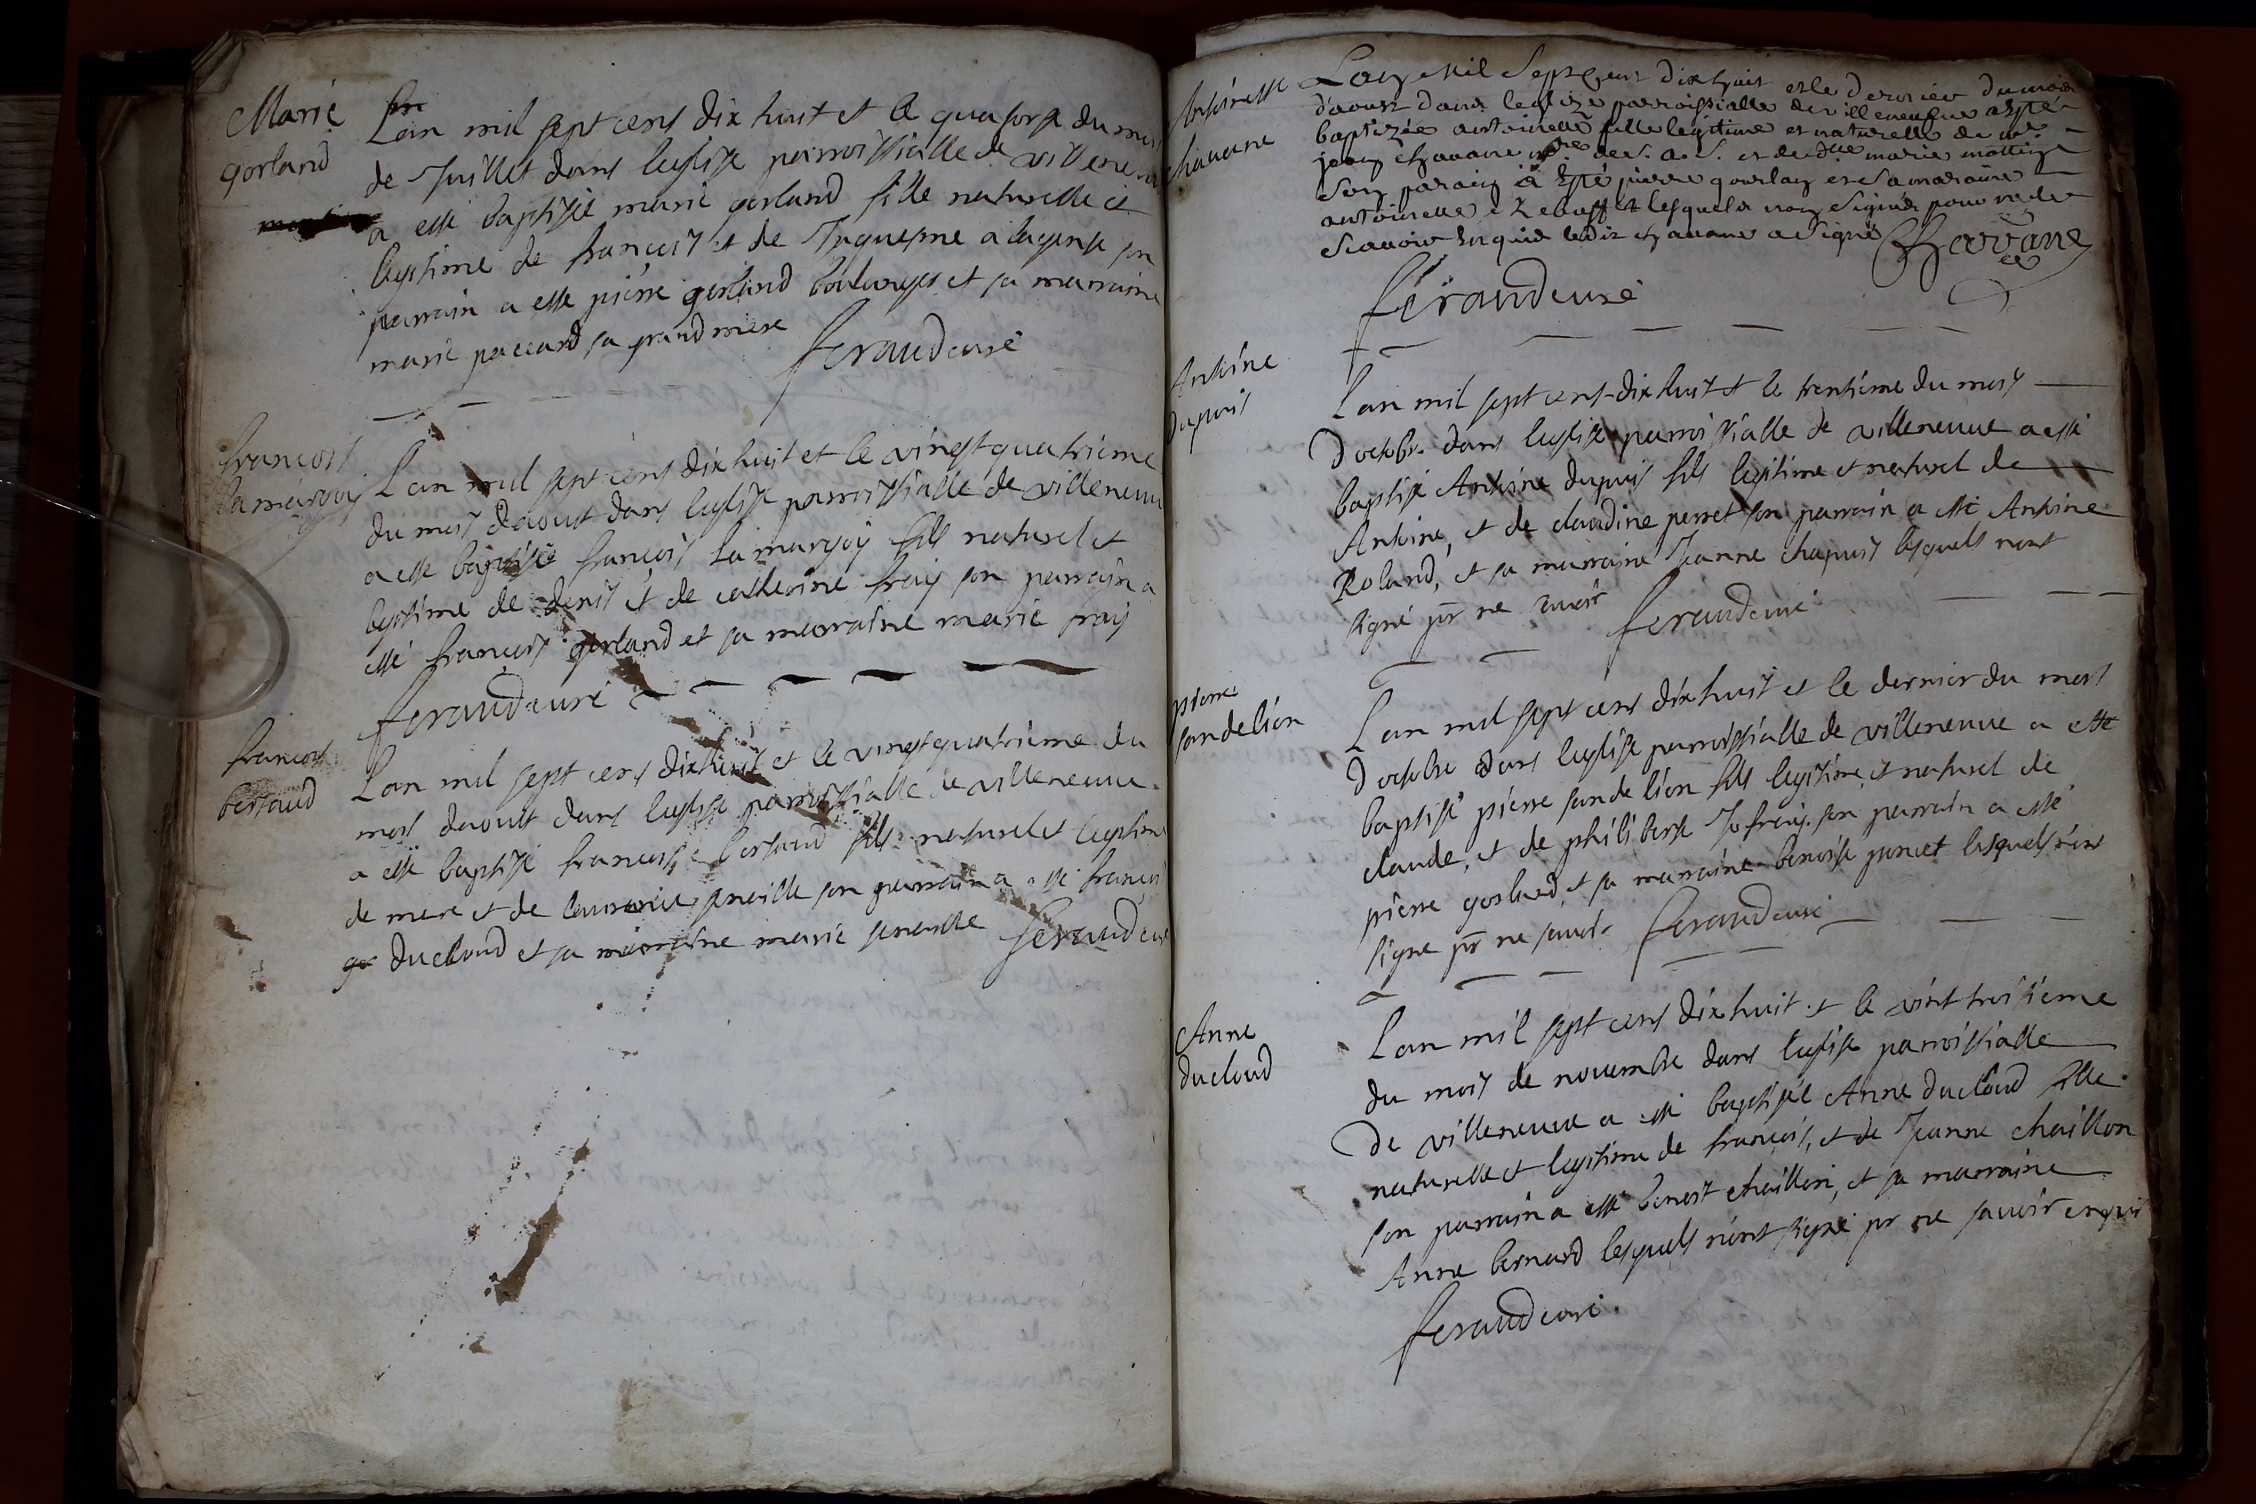 Marie
gorland
Lan mil sept cens dix huit et le quatorse du mois
de Juillet dans leglise parroissialle de villeneu
a esté baptisée marie gorland fille naturelle et
legitime de francois et de Juquesme alagense son
parrain a esté pierre gorland boulanger et sa marraine
marie paccard sa grand mere
feraud curé
francois
Lamarjoy
Lan mil sept cens dix huit et le vingt quatrieme
du mois daoust dans leglise parroissialle de villeneuve
a esté baptisé francois Lamarjoy fils naturel et
legitime de denis et de catherine fraij son parrain a
esté francois gorland et sa marraine marie fraij
feraud curé
francois
bertaud
Lan mil sept cens dix huit et le vingt quatrieme du
mois daoust dans leglise parroissialle de villeneuve
a esté baptisé francois bertaud fils naturel et legitime
de marc et de son parrain a esté francois
ducloud et sa marraine marie
feraud curé
Antoinette
chavane
Lan Mil Sept Cent dix huit et le dernier du mois
daoust dans leglize parroissialle de villeneufve a esté
baptizée antoinette fille legitime et naturelle de mre
jean chavane de S. A. S. et de dlle marie
son parain a esté pierre gourlan et sa maraine
antoinette lesquels nont signés pour ne le
scavoir enquis ledit chavane a signé
Chavane
féraud curé
Antoine
dupuis
Lan mil sept cens dix huit et le trentieme du mois
doctobr. dans leglise parroissialle de villeneuve a esté
baptisé Antoine dupuis fils legitime et naturel de
Antoine, et de claudine perret son parrain a esté Antoine
Roland, et sa marraine Jeanne chapuis lesquels nont
signé pr ne savoir
feraud curé
pierre
sandelion
Lan mil sept cens dix huit et le dernier du mois
doctobre dans leglise parroissialle de villeneuve a esté
baptisé pierre sandelion fils legitime et naturel de
claude, et de philiberte Jofraij. son parrain a esté
pierre gorland, et sa marraine benoiste poncet lesquels n'ont
signe pr ne savoir
feraud curé
Anne
ducloud
Lan mil sept cens dix huit et le vint troisieme
du mois de novembre dans leglise parroissialle
de villeneuve a esté baptisée Anne ducloud fille
naturelle et legitime de francois, et de Jeanne chaillon
son parrain a esté benoit chaillon, et sa marraine
Anne bernard lesquels n'ont signé pr ne savoir enquis
feraud curé